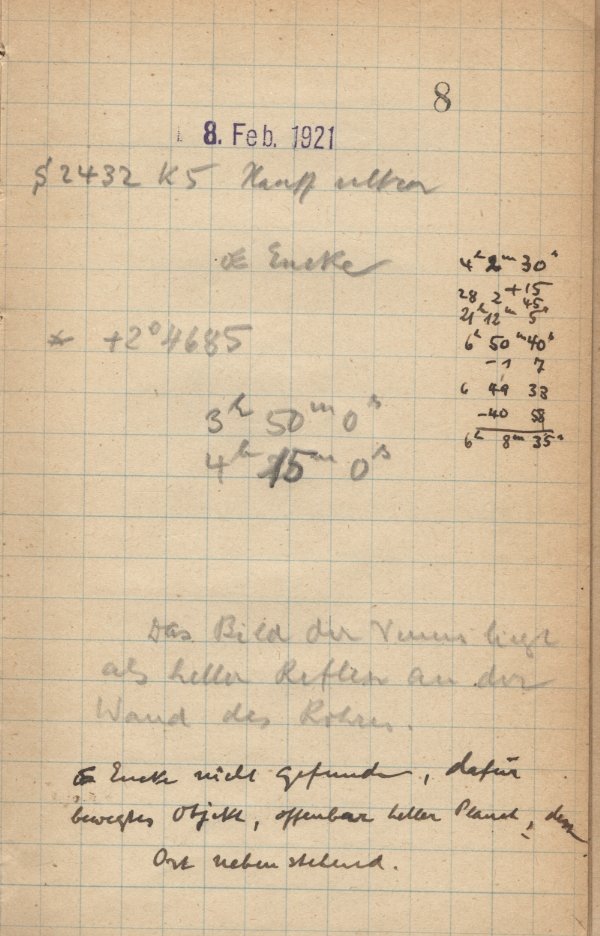 8
8. Feb. 1921
2432 K5 Hauff ultra
☄ Encke
* +2° 4685
3ʰ 50ᵐ 0ˢ
4ʰ 15ᵐ 0ˢ
4ʰ 2ᵐ 30ˢ
+15
28 2 45
21ʰ 12ᵐ 5ˢ
6ʰ 50ᵐ 40ˢ
-1 7
6 49 33
-40 58
6ʰ 8ᵐ 35ˢ
Das Bild der Venus liegt
als heller Reflex an der
Wand des Rohres.
☄ Encke nicht gefunden, dafür
bewegtes Objekt, offenbar heller Planet, dessen
Ort nebenstehend.